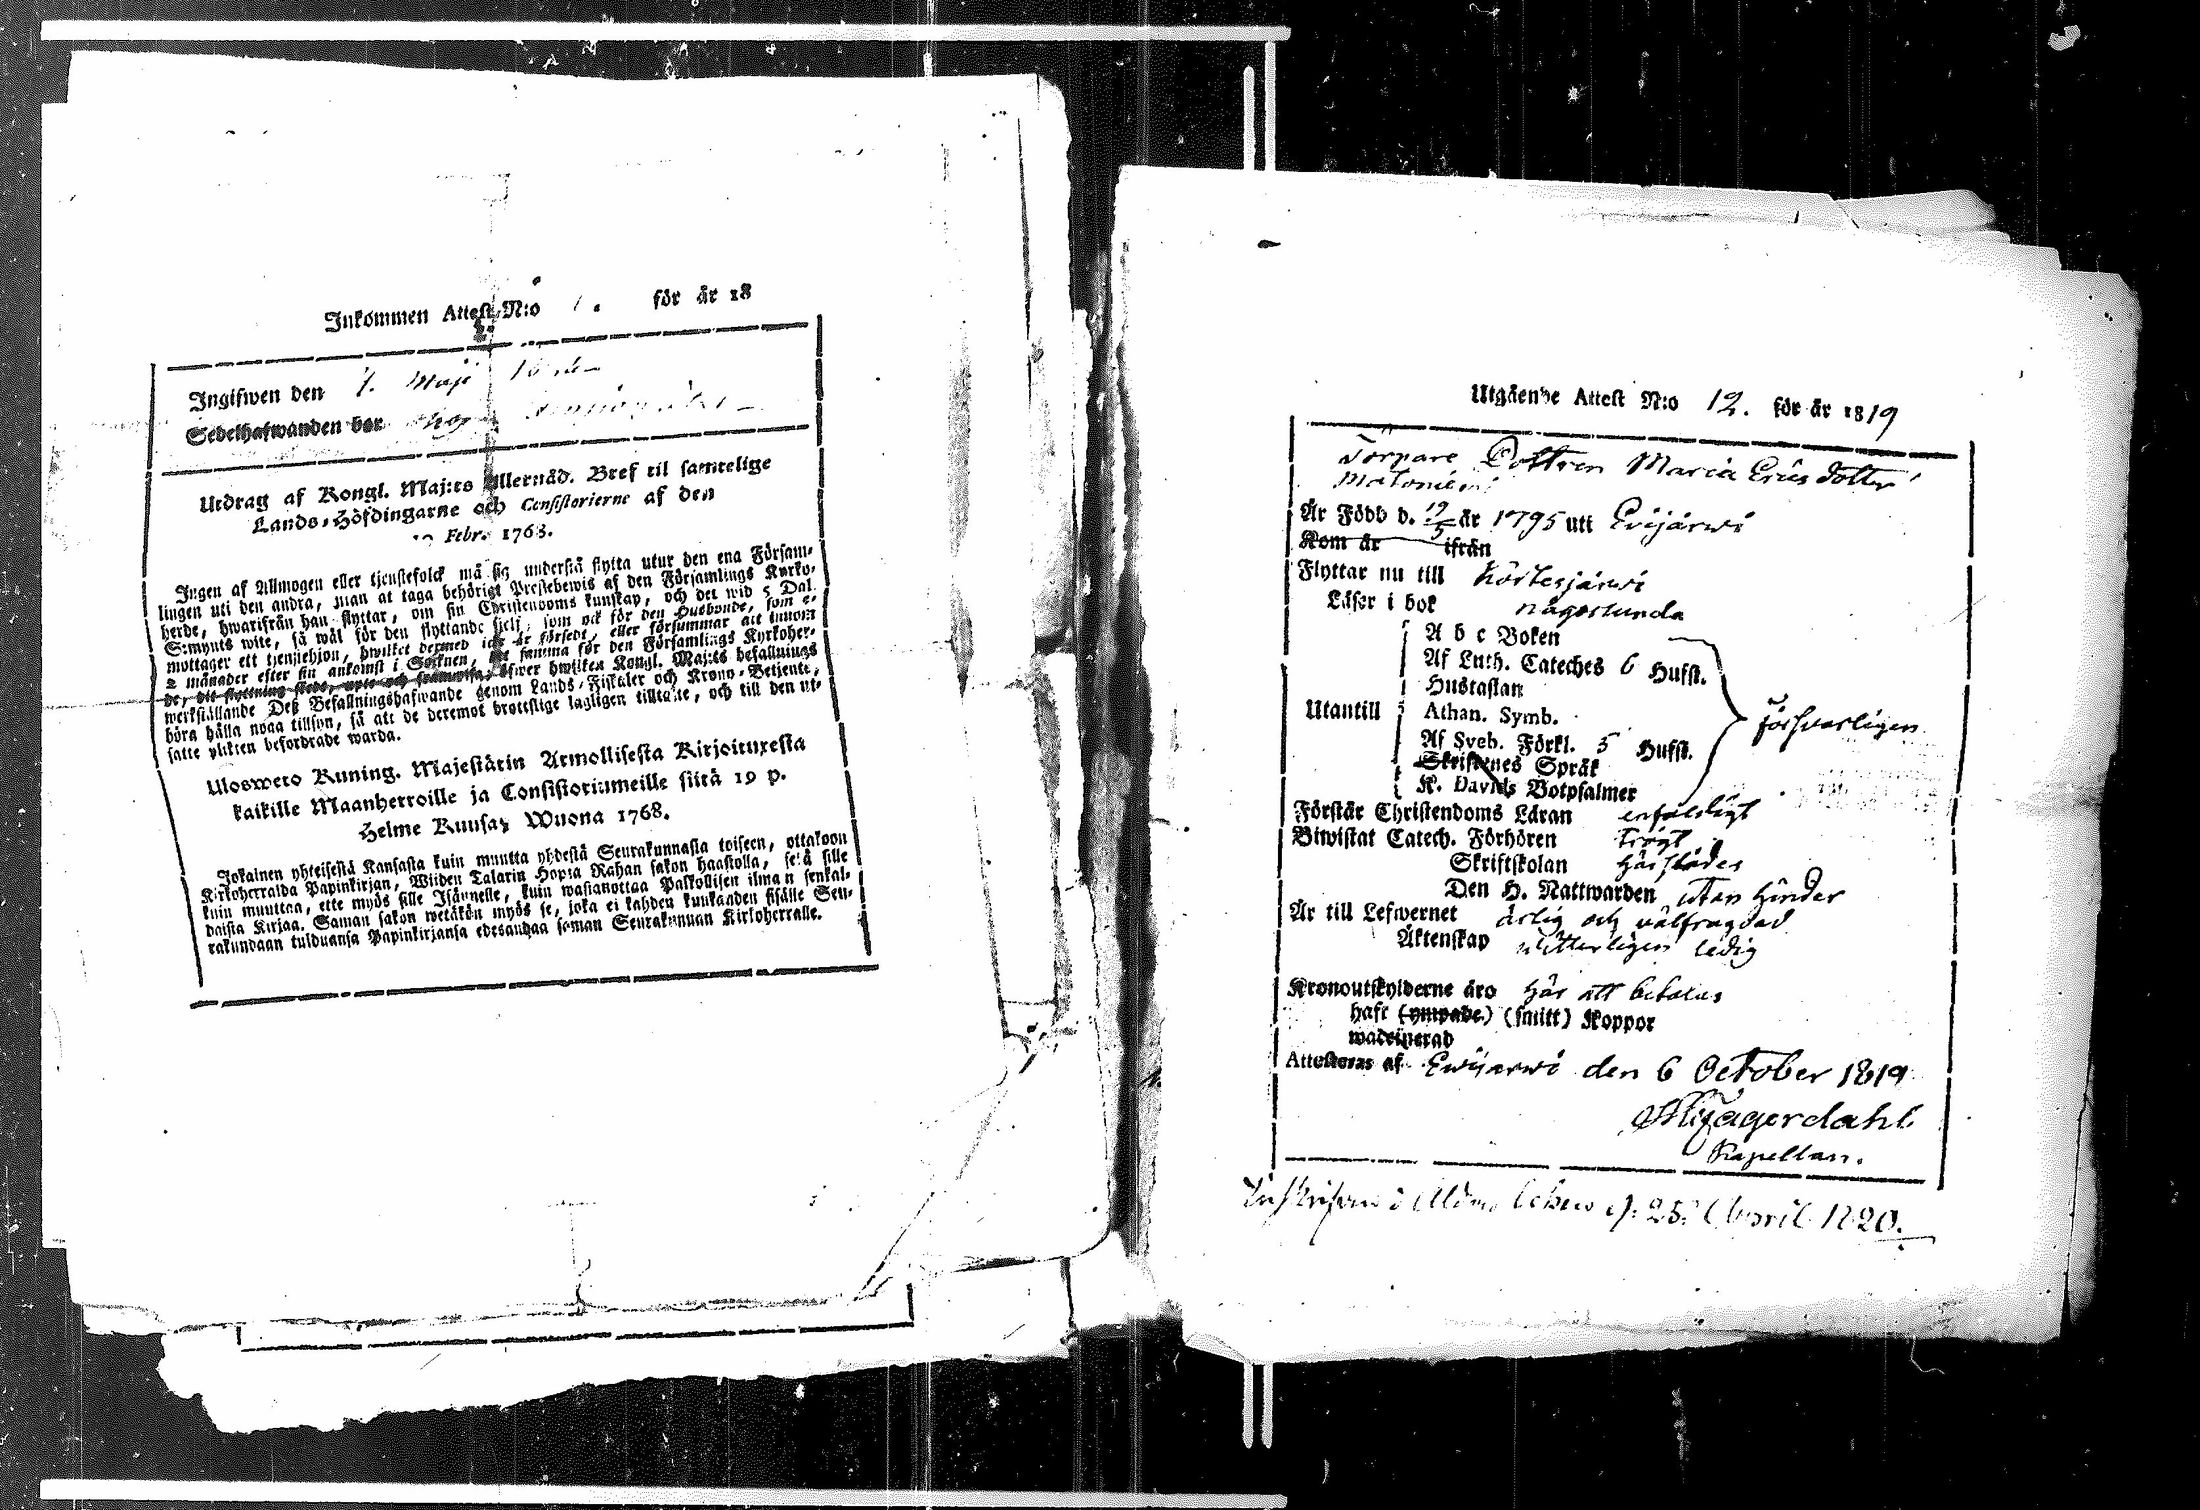 Inkommen Attest N:o för år 18
Ingifwen den 7. Maji
Sedelhafwanden bor
Utdrag af Kongl. Maj:ts Allernåd. Bref til samtelige
Lands-Höfdingarne och Consistorierne af den
Febr. 1768.
Ingen af Allmogen eller tjenstefolck må sig understå flytta utur den ena Försam-
lingen uti den andra, utan at taga behörigt Prestebewis af den Församlings Kyrko-
herde, hwarifrån han flyttar, om sin Christendoms kunskap, och det wid 5 Dal.
S:mynts wite, så wäl för den flyttande sjelf, som ock för den Husbonde, som e-
mottager ett tjenstehjon, hwilket dermed icke är försedt, eller försummar att innom
2 månader efter sin ankomst i Socknen, för den Församlings Kyrkoher-
öfwer hwilken Kongl. Maj:ts befallnings
werkställande Deß Befallningshafwande genom Lands-Fiskaler och Krono-Betjente,
böra hålla noga tillsyn, så att de deremot brottslige lagligen tilltalte, och till den ut-
satte plikten befordrade warda.
Ulosweto Kuning. Majestätin Armollisesta Kirjoituxesta
kaikille Maanherroille ja Consistoriumeille siitä 19 p.
Helme Kuusa Wuona 1768.
Jokainen yhteisestä Kansasta kuin muutta yhdestä Seurakunnasta toiseen, ottakoon
Kirkoherralda Papinkirjan, Wiiden Talarin Hopia Rahan sakon haastolla, sekä sille
kuin muuttaa, ette myös sille Isännelle, kuin wastanottaa Palkollisen ilman senkal-
daista Kirjaa. Saman sakon wetäkön myös se, joka ei kahden kuukauden sisälle Seu-
rakundaan tulduansa Papinkirjansa edesandaa saman Seurakunnan Kirkoherralle.
Utgående Attest N:o 12. för år 1819
Torpare Dottren Maria Ericsdotter
Är Född d. 19/5 år 1795 uti Evijärwi
Kom år ifrån
Flyttar nu till Körtesjärwi
Läser i bok någorlunda
A b c Boken
Af Luth. Cateches 6 Hufst.
Hustaflan
Utantill Athan. Symb. försvarligen
Af Sveb. Förkl. 5 Hufst.
Skriftenes Språk
K. Davids Botpsalmer
Förstår Christendoms Läran enfaldigt
Biwistat Catech. Förhören trögt
Skriftskolan härstädes
Den H. Nattwarden utan hinder
Är till Lefwernet ärlig och välfrägdad
Äktenskap witterligen ledig
Kronoutskylderne äro här att betalas
haft (ympade) (smitt) Koppor
waccinerad
Attesteras af Ewijärwi den 6 October 1819
Kapellan.
25 April 1820.